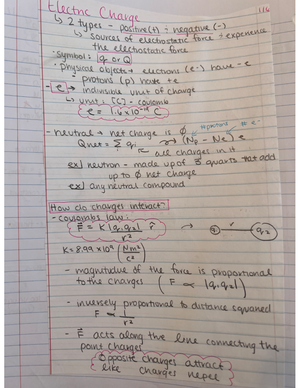 Electric Charge
1/6
↳ 2 types - positive(+) + negative (-)
↳ sources of electrostatic force + experience
the electrostatic force
- symbol: q or Q
- physical objects → electrons (e-) have -e
- protons (p) have +e
- e → indivisible unit of charge
↳ unit: [C] - coulomb
e = 1.6x10⁻¹⁹ C
- neutral → net charge is 0
# protons # e-
Qnet = Σ qi → (Np - Ne) e
all charges in it
ex) neutron - made up of 3 quarks that add
up to 0 net charge
ex) any neutral compound
How do charges interact?
- coulombs law:
F = K |q₁q₂| / r² r̂ → q₁ r q₂
K = 8.99 x10⁹ (Nm²/C²)
- magnitude of the force is proportional
to the charges (F ∝ |q₁q₂|)
- inversely proportional to distance squared
F ∝ 1/r²
- F acts along the line connecting the
point charges
opposite charges attract
like charges repel